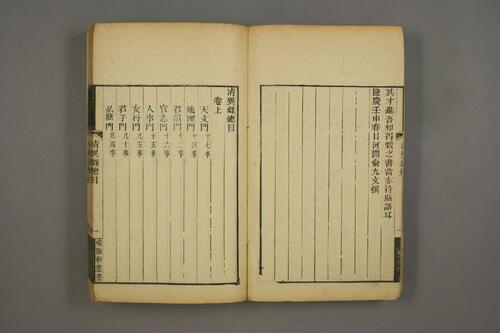 其才雖吾知得穀之書當亦符斯語耳
隆慶壬申春日河間俞允文撰
清異錄總目
卷上
天文門十七事
地理門十四事
君道門十二事
官志門十六事
人事門十五事
女行門凡五事
君子門凡十事
清異錄總目
一